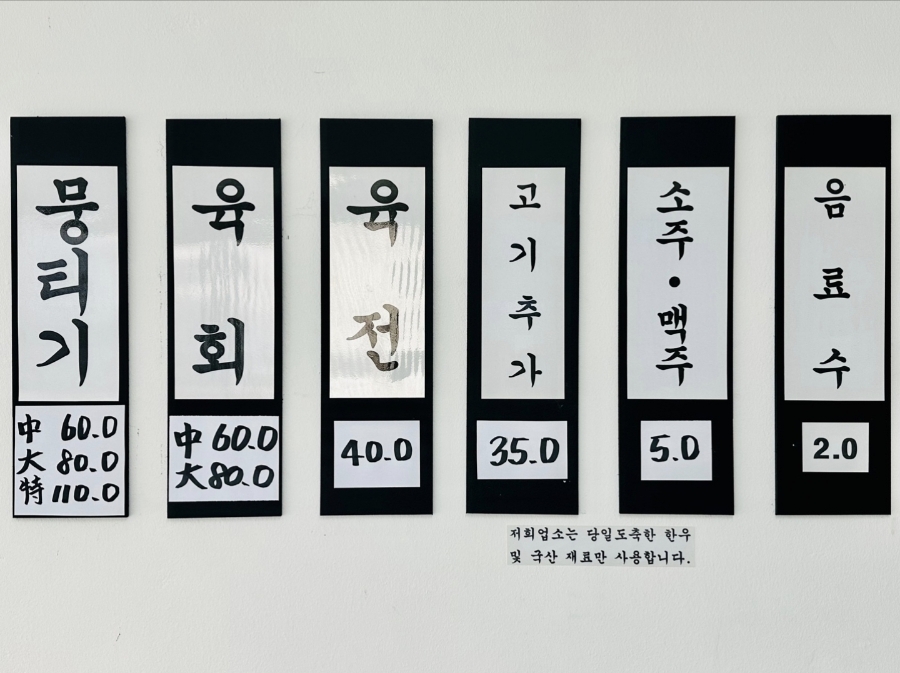 뭉티기
中 60.0
大 80.0
特 110.0
육회
中 60.0
大 80.0
육전
40.0
고기추가
35.0
소주·맥주
5.0
음료수
2.0
저희업소는 당일도축한 한우
및 국산 재료만 사용합니다.